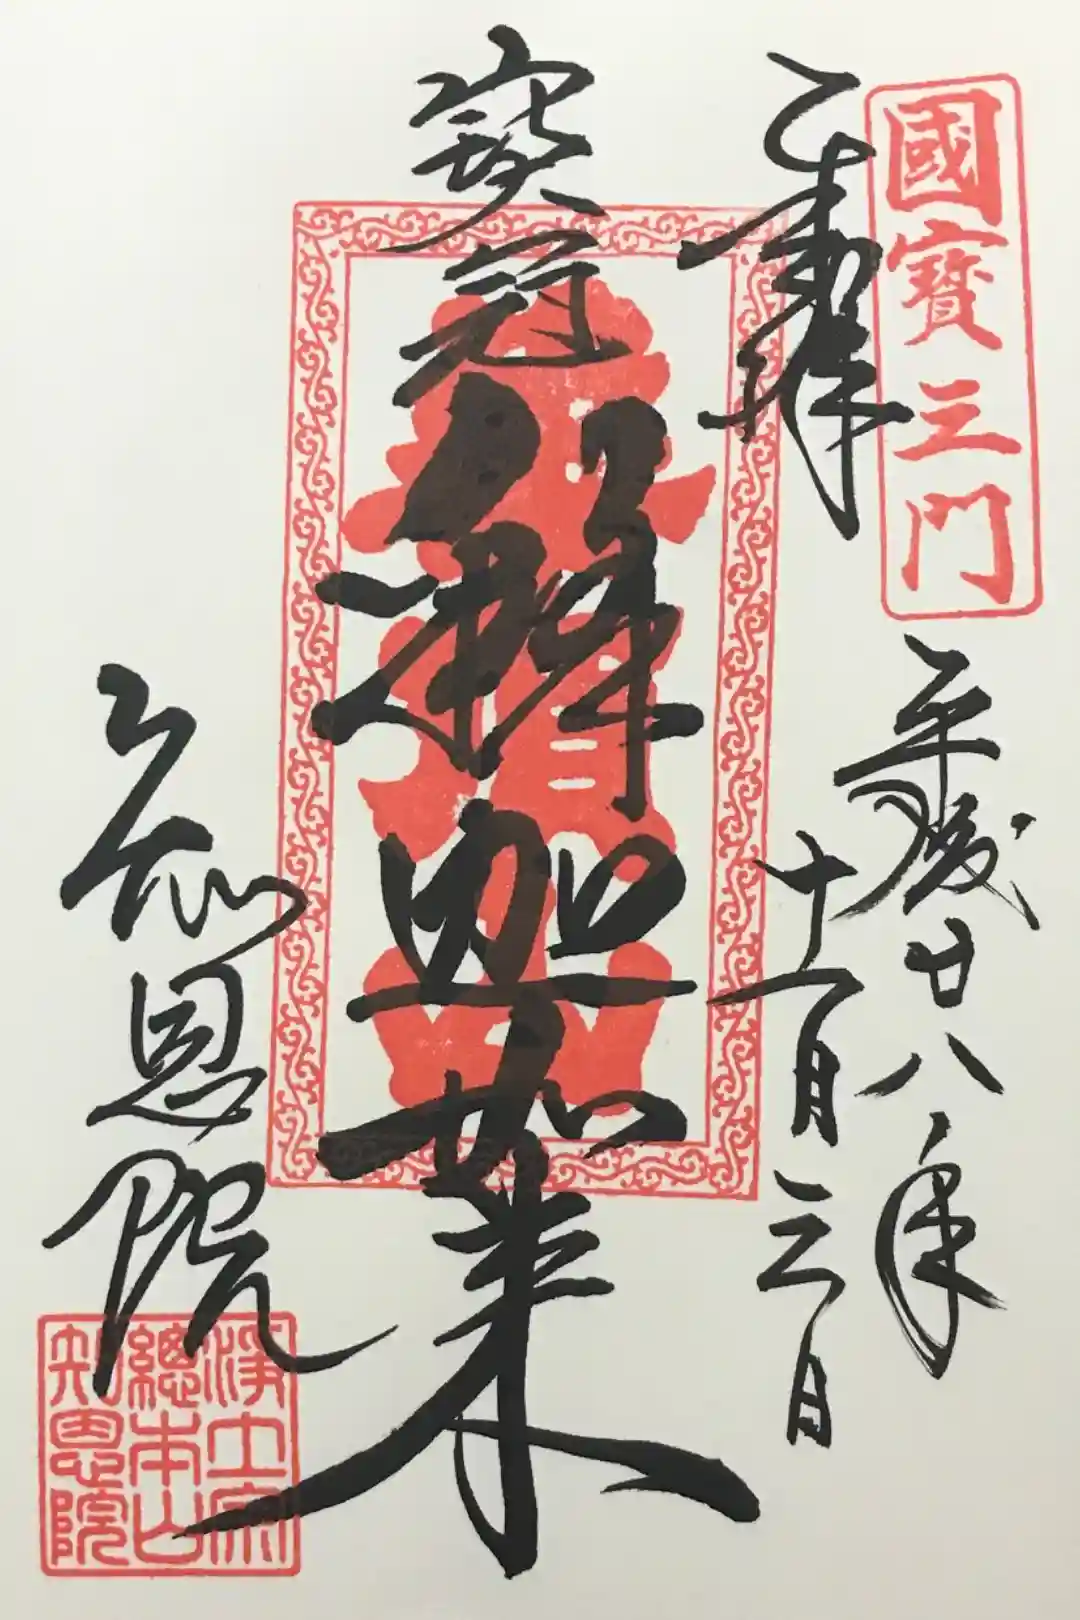 國寶三門
奉拝
平成廿八年
十一月三日
寶冠釋迦如来
知恩院
淨土宗
總本山
知恩院